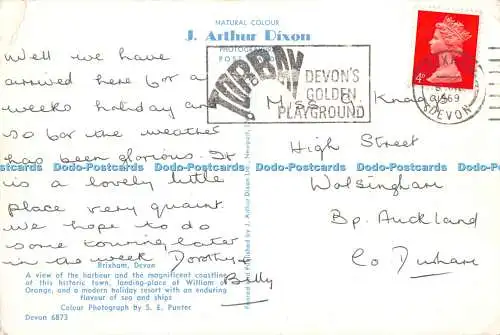 NATURAL COLOUR
J. Arthur Dixon
PHOTOGRAPHIC
POST
Well we have
arrived here for a
weeks holiday and
so far the weather
has been glorious. It
is a lovely little
place very quaint.
We hope to do
some touring later
in the week Dorothy &
Billy
Brixham, Devon
A view of the harbour and the magnificent coastline
of this historic town, landing-place of William of
Orange, and a modern holiday resort with an enduring
flavour of sea and ships
Colour Photograph by S. E. Punter
Devon 6873
Printed and Published by J. Arthur Dixon Ltd., Newport,
TORBAY
DEVON'S
GOLDEN
PLAYGROUND
4d
1969
DEVON
Miss
High Street
Wolsingham
Bp. Auckland
Co Durham
Dads-Postcards.com Dads-Postcards.com Dads-Postcards.com Dads-Postcards.com